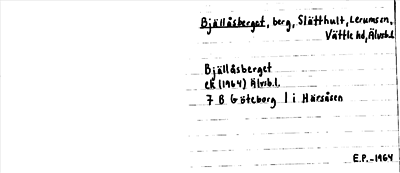 Bjällåsberget, berg, Slätthult, Lerums sn,
Vättle hd, Älvsb.l.
Bjällåsberget
ek (1964) Älvsb.l.
7 B Göteborg | i Härsåsen
E.P. - 1964